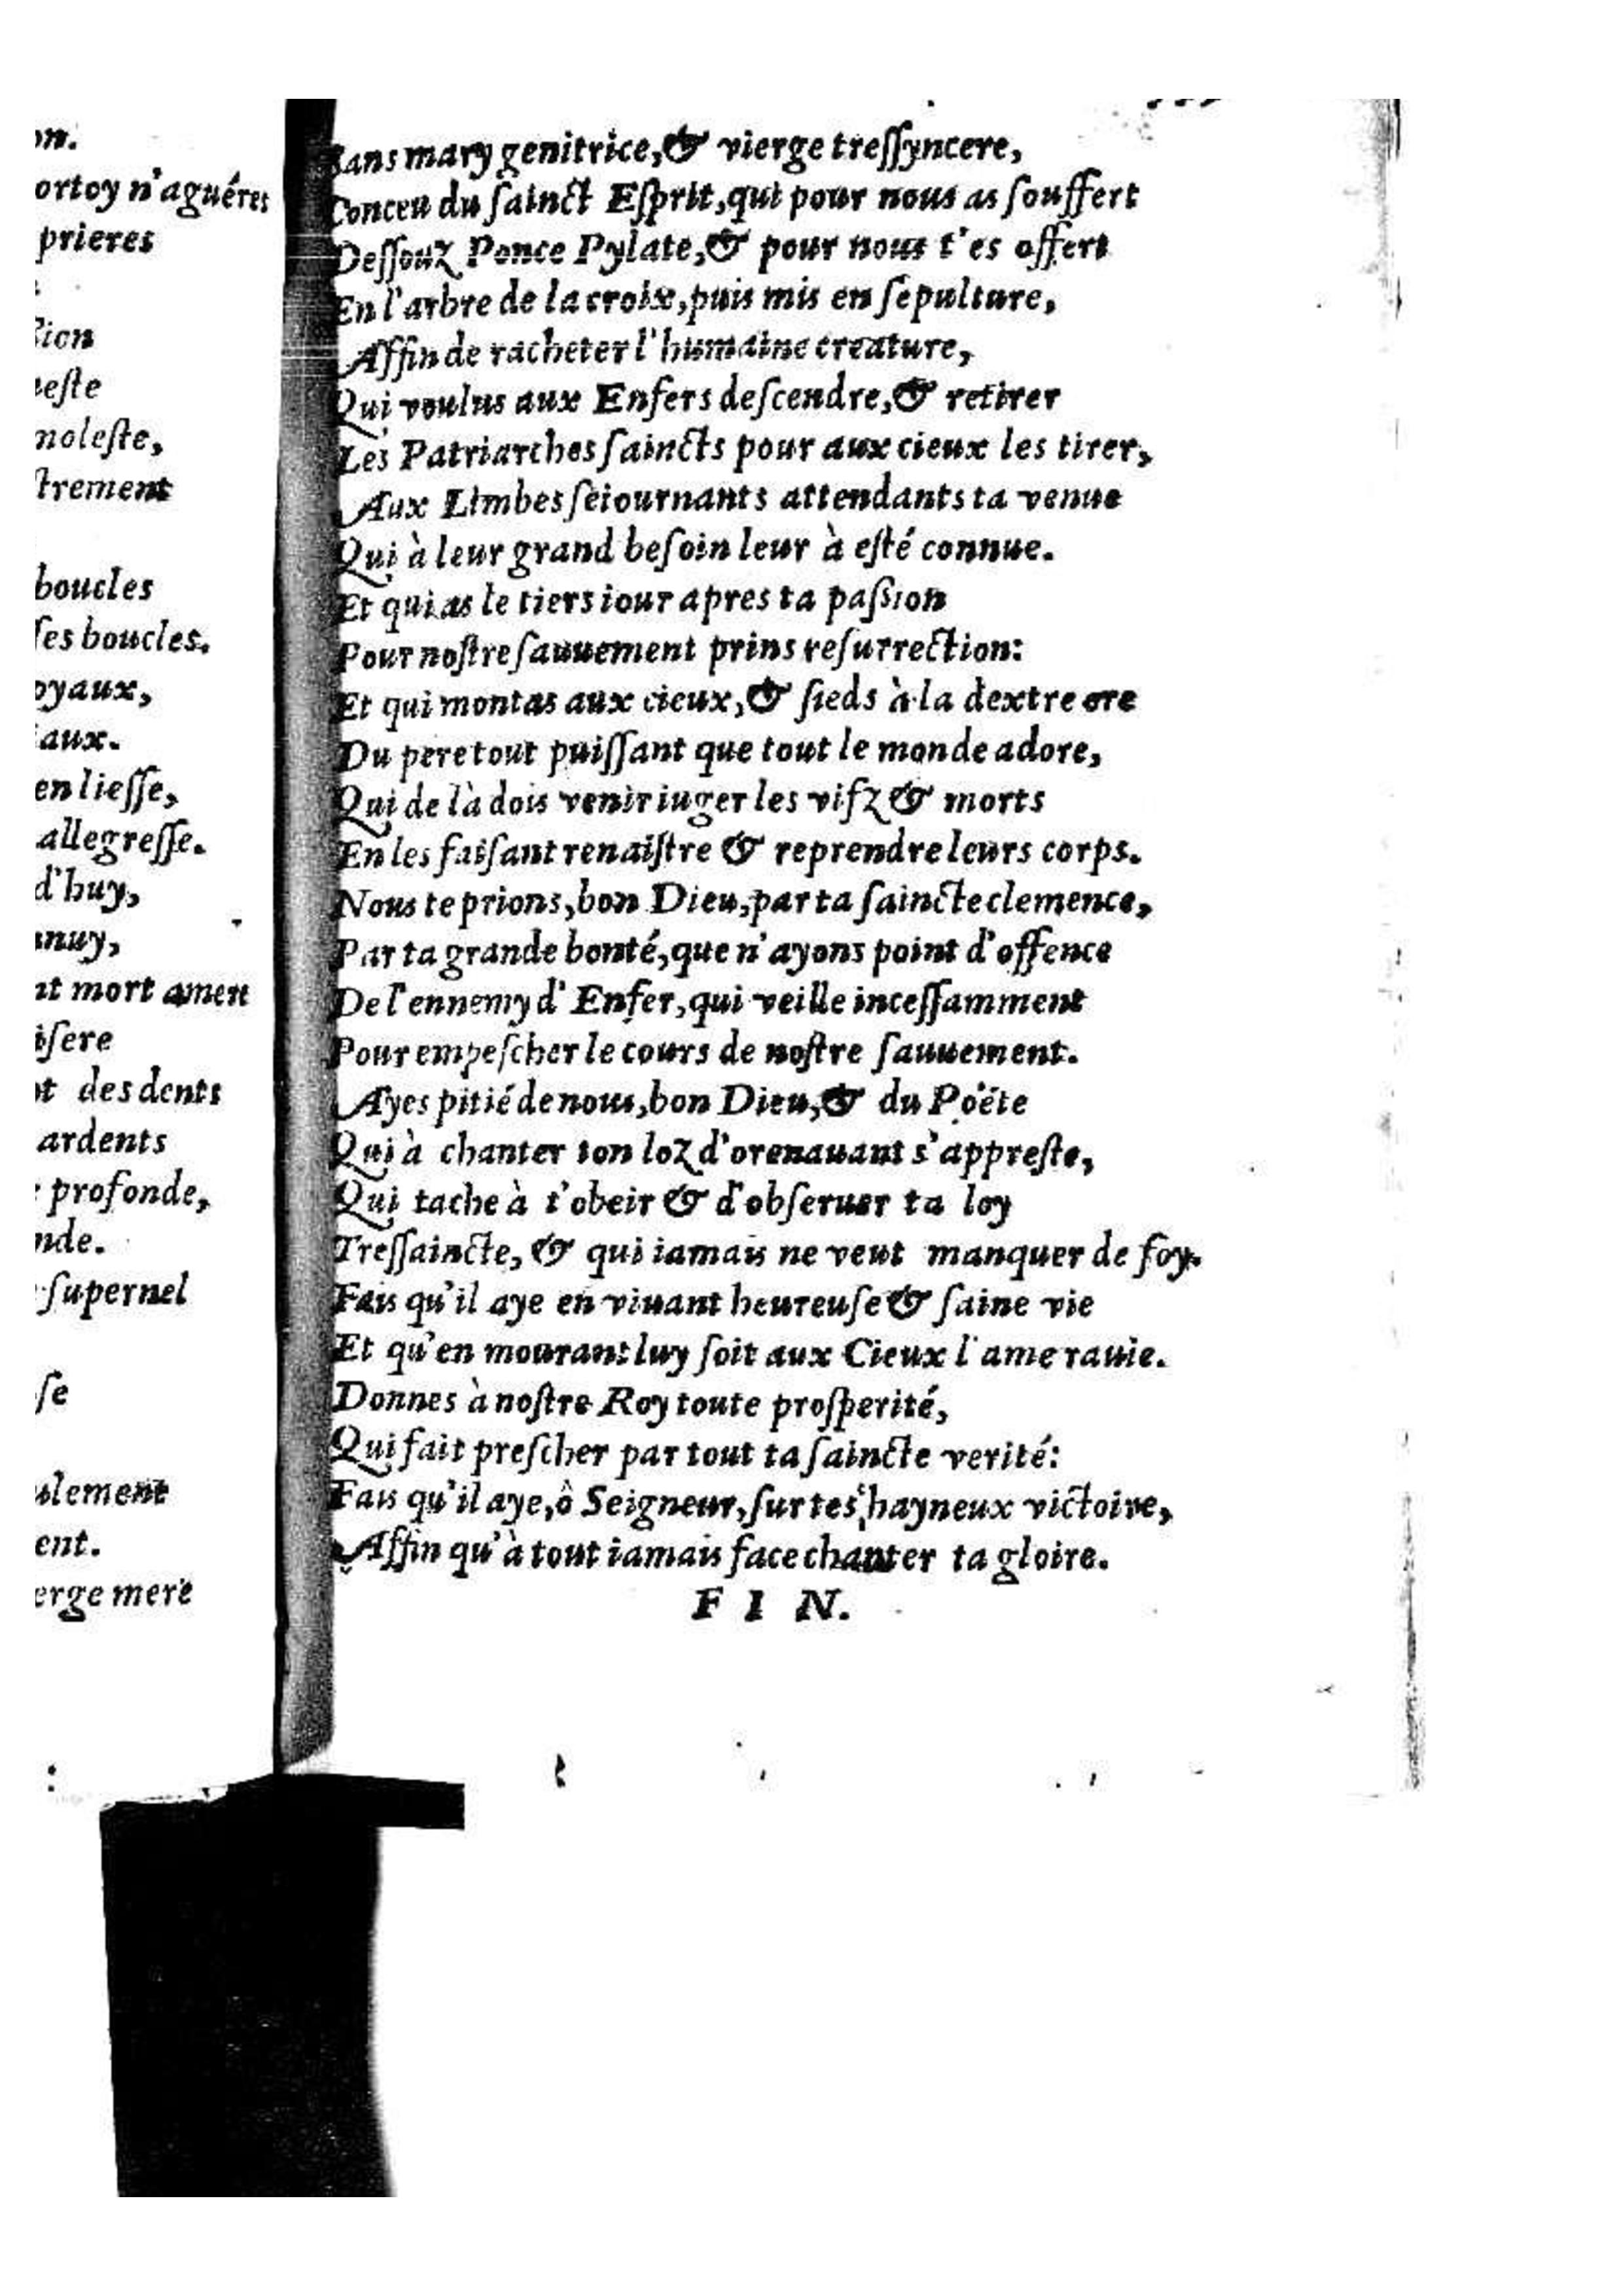 on.
ortoy n'aguéres
prieres
sion
este
moleste,
strement
boucles
ſes boucles.
oyaux,
aux.
en lieſſe,
allegreſſe.
d'huy,
nuy,
nt mort amere
iſere
ot des dents
ardents
profonde,
nde.
ſupernel
ſe
ulement
ent.
erge mere
Sans mary genitrice, & vierge treſſyncere,
Conceu du ſainct Eſprit, qui pour nous as ſouffert
Deſſouz Ponce Pylate, & pour nous t'es offert
En l'arbre de la croix, puis mis en ſepulture,
Affin de racheter l'humaine creature,
Qui voulus aux Enfers deſcendre, & retirer
Les Patriarches ſaincts pour aux cieux les tirer,
Aux Limbes ſeiournants attendants ta venue
Qui à leur grand beſoin leur à eſté connue.
Et qui as le tiers iour apres ta paſsion
Pour noſtre ſauuement prins reſurrection:
Et qui montas aux cieux, & ſieds à la dextre ore
Du pere tout puiſſant que tout le monde adore,
Qui de là dois venir iuger les vifz & morts
En les faiſant renaiſtre & reprendre leurs corps.
Nous te prions, bon Dieu, par ta ſaincte clemence,
Par ta grande bonté, que n'ayons point d'offence
De l'ennemy d'Enfer, qui veille inceſſamment
Pour empeſcher le cours de noſtre ſauuement.
Ayes pitié de nous, bon Dieu, & du Poëte
Qui à chanter ton loz d'orenauant s'appreſte,
Qui tache à t'obeir & d'obſeruer ta loy
Treſſaincte, & qui iamais ne veut manquer de foy.
Fais qu'il aye en viuant heureuſe & ſaine vie
Et qu'en mourant luy ſoit aux Cieux l'ame rauie.
Donnes à noſtre Roy toute proſperité,
Qui fait preſcher par tout ta ſaincte verité:
Fais qu'il aye, ô Seigneur, ſur tes hayneux victoire,
Affin qu'à tout iamais face chanter ta gloire.
F I N.